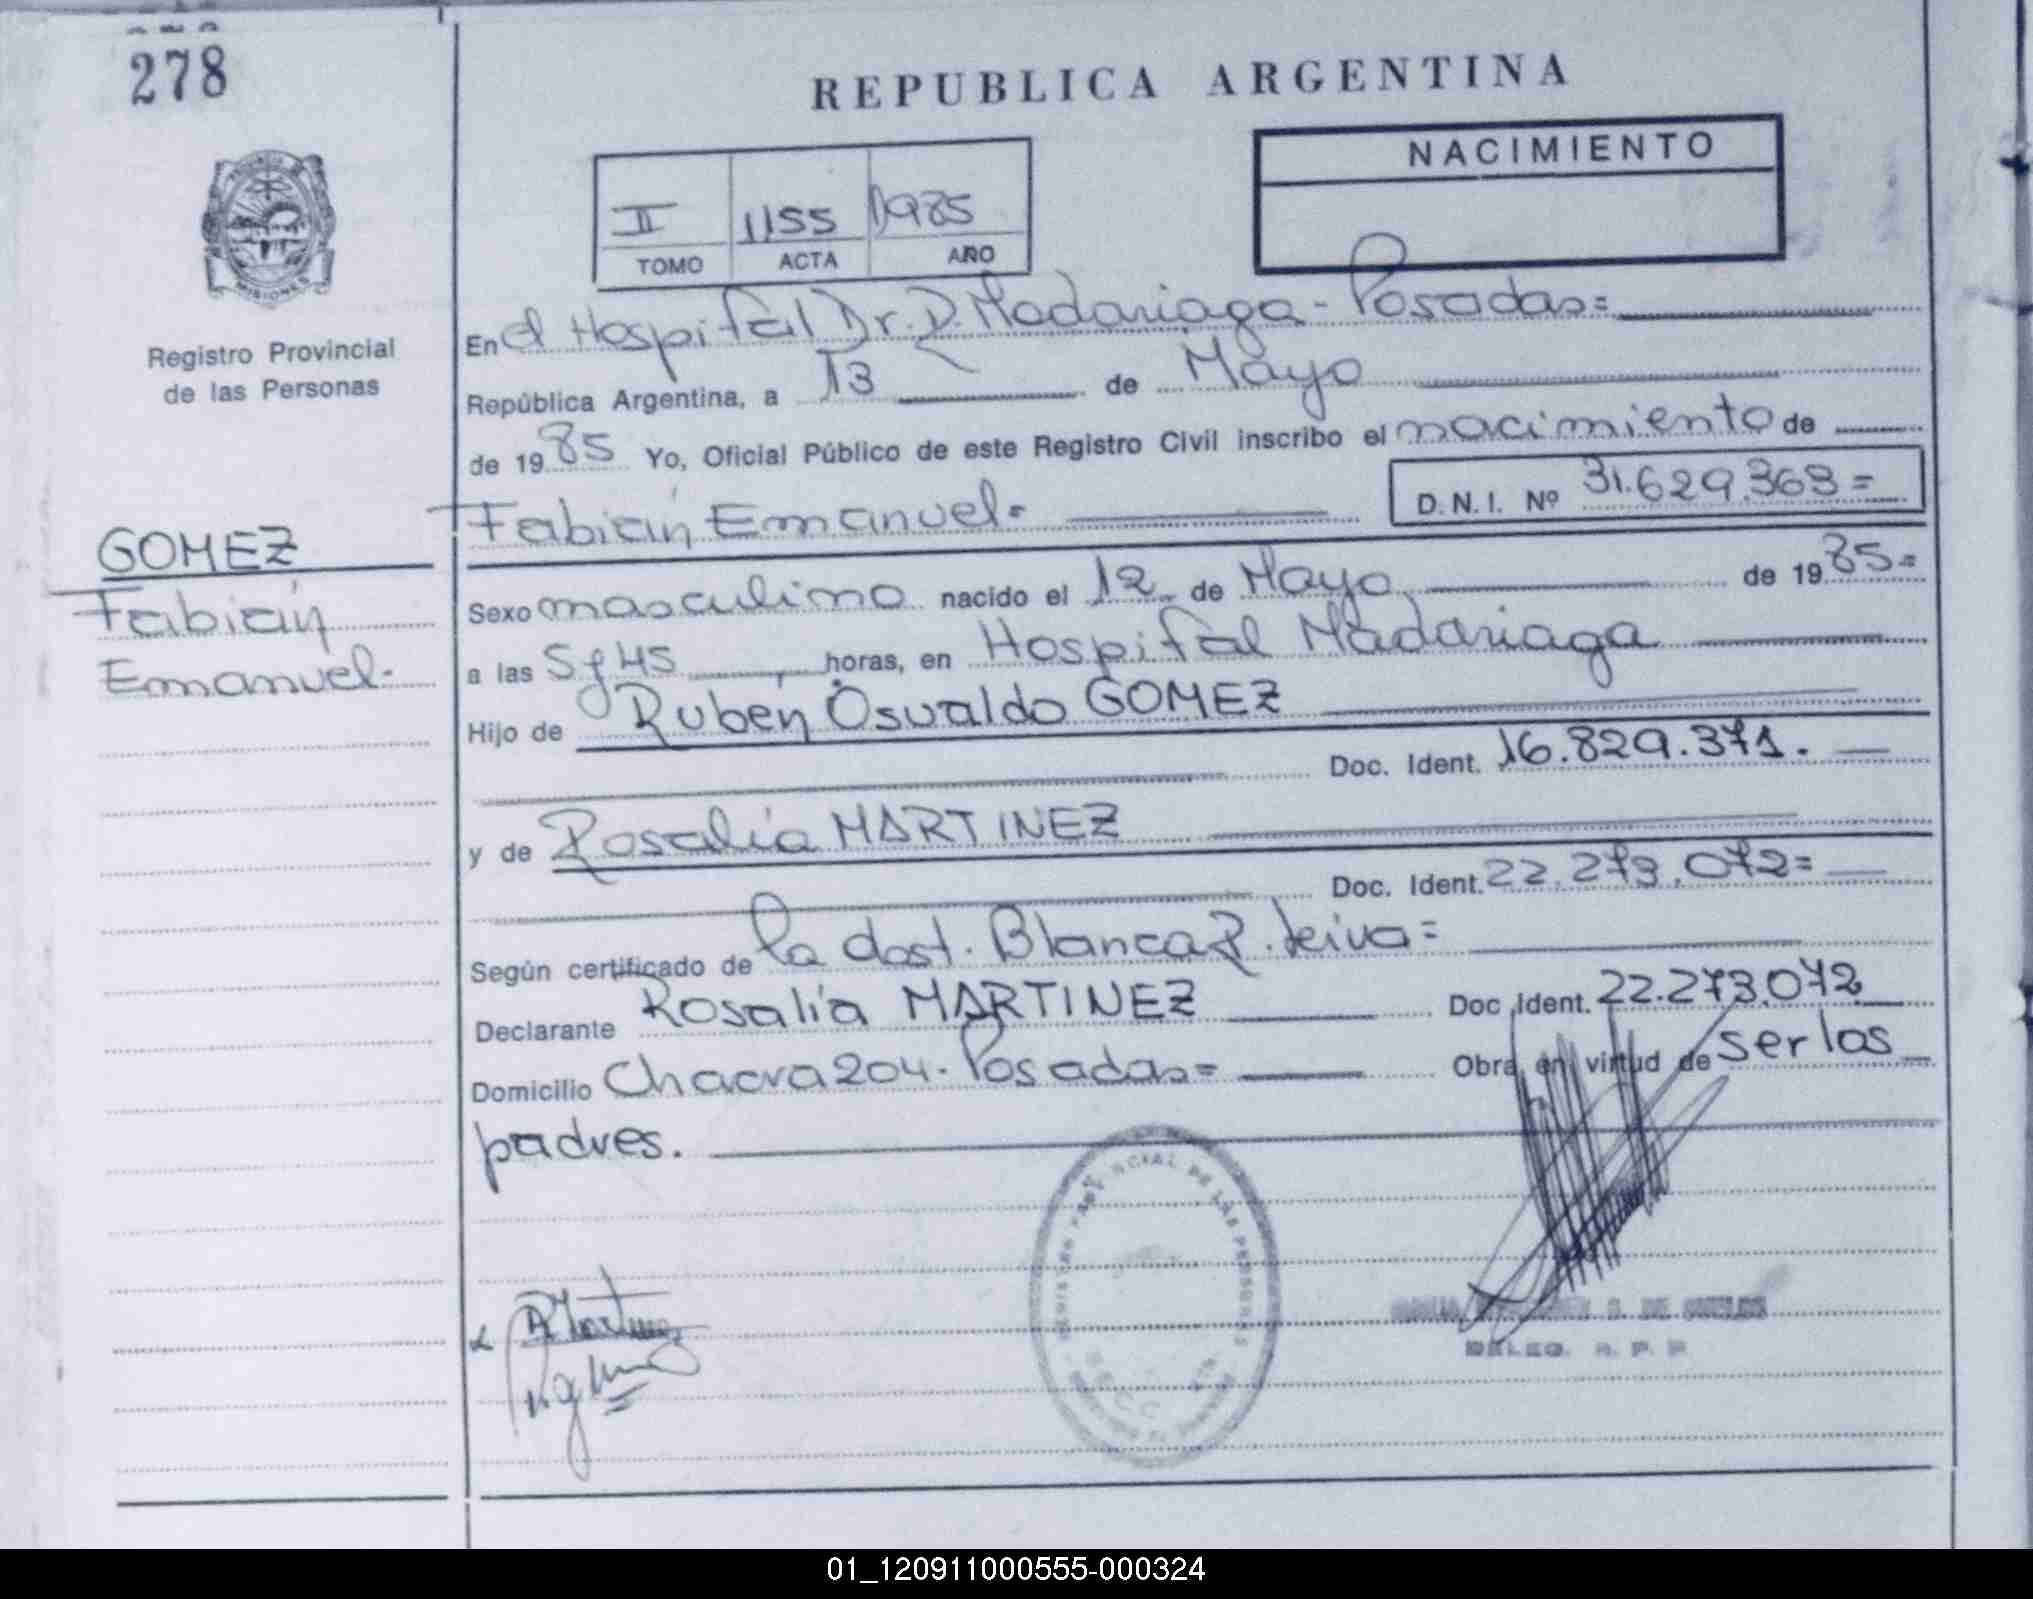 278
REPUBLICA ARGENTINA
NACIMIENTO
II 1155 1985
TOMO ACTA AÑO
MISIONES
Registro Provincial
de las Personas
GOMEZ
Fabián
Emanuel.
En el Hospital Dr. D. Madariaga - Posadas=
República Argentina, a 13 de Mayo
de 1985 Yo, Oficial Público de este Registro Civil inscribo el nacimiento de
Fabián Emanuel= D.N.I. Nº 31.629.369=
Sexo masculino nacido el 12 de Mayo de 1985=
a las 5 y 45 horas, en Hospital Madariaga
Hijo de Rubén Osvaldo GOMEZ
Doc. Ident. 16.829.371.
y de Rosalía MARTINEZ
Doc. Ident. 22.273.072=
Según certificado de la dost. Blanca R. Leiva=
Declarante Rosalía MARTINEZ Doc Ident. 22.273.072
Domicilio Chacra 204. Posadas= Obra en virtud de ser los
padres.
REGISTRO PROVINCIAL DE LAS PERSONAS
R Martinez
DELEG. R. P. P.
01_120911000555-000324